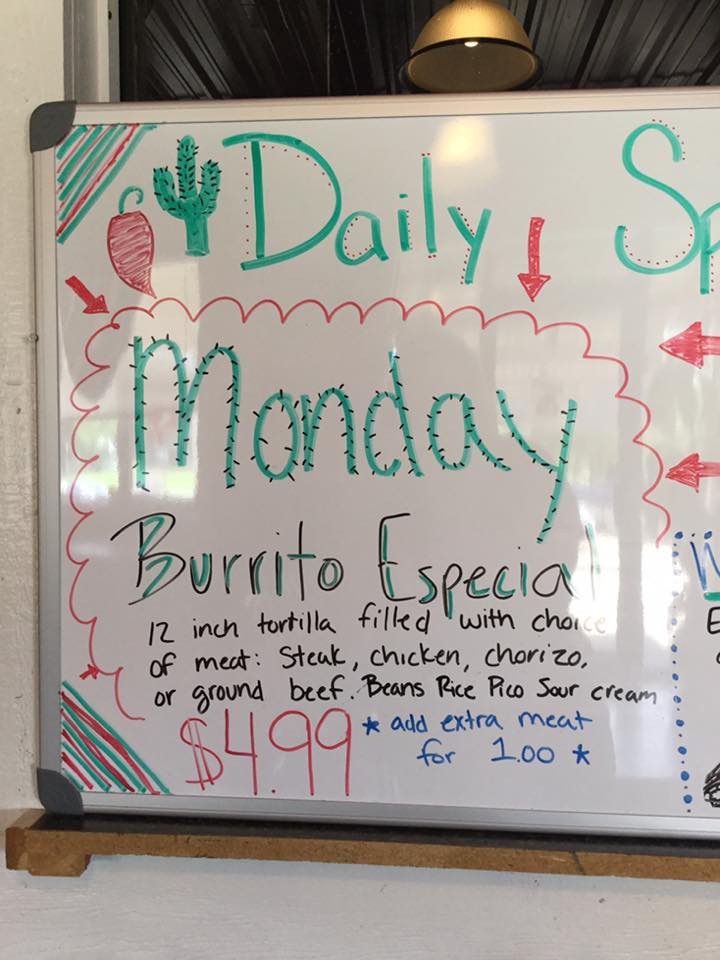 Daily Sp
Monday
Burrito Especial
12 inch tortilla filled with choice
of meat: Steak, chicken, chorizo,
or ground beef. Beans Rice Pico Sour cream
$4.99 * add extra meat
for 1.00 *